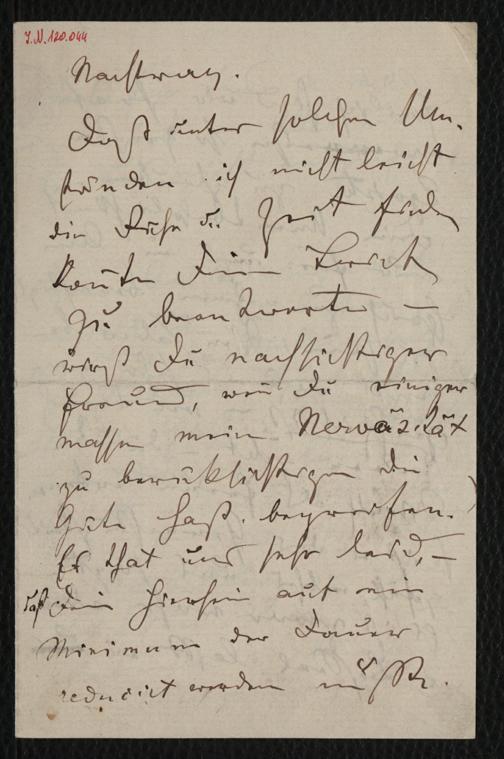 J.N. 120.044
Nachtrag.
Daß unter solchen Um-
ständen ich nicht leicht
die Ruhe u. Zeit finden
konnte Deine
zu beantworten —
wirst Du nachsichtiger
Freund, wenn Du einiger
massen meine Nervosität
zu berücksichtigen die
Güte hast, begreifen.
Es that uns sehr leid, —
daß Dein Hiersein auf ein
Minimum der Dauer
reducirt werden mußte.